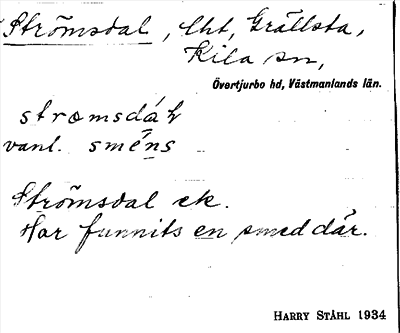 Strömsdal, lht, Grällsta,
Kila sn,
Övertjurbo hd, Västmanlands län.
stromsdáɫ
vanl. sméns
Strömsdal ek.
Har funnits en smed där.
HARRY STÅHL 1934